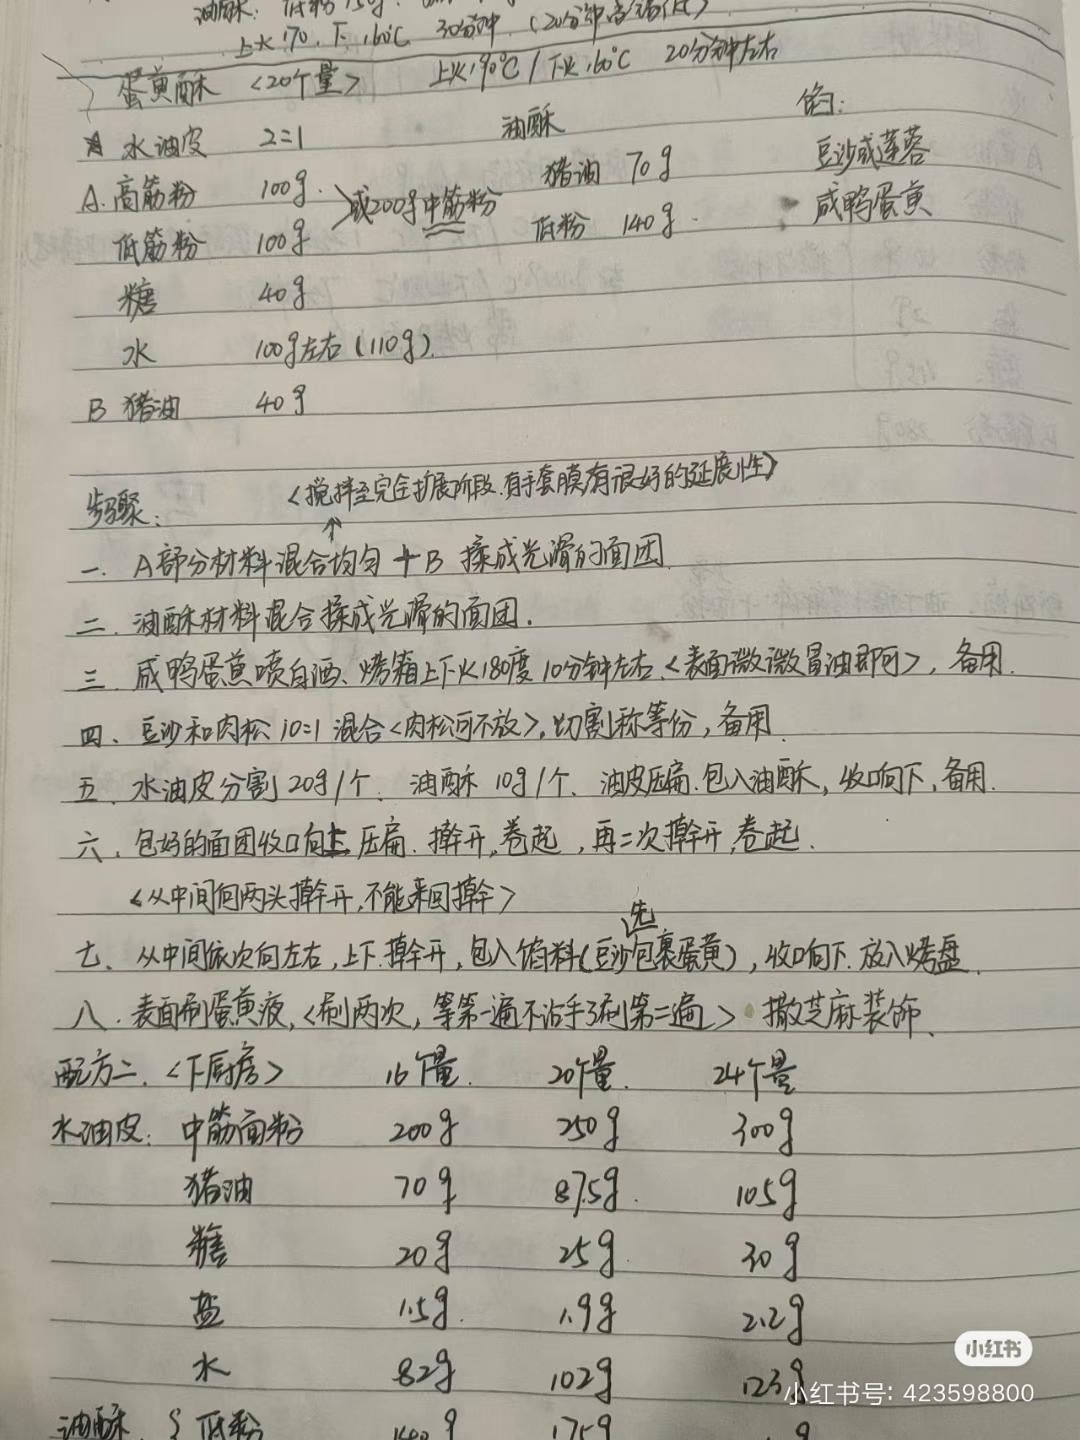 油酥: 低粉 75g
上火170. 下160℃ 30分钟. (20分钟
蛋黄酥 <20个量> 上火190℃/下火160℃ 20分钟左右
水油皮 2=1 油酥 馅:
A. 高筋粉 100g. 或200g中筋粉 猪油 70g 豆沙或莲蓉
低筋粉 100g 低粉 140g. 咸鸭蛋黄
糖 40g
水 100g左右(110g).
B 猪油 40g
<搅拌至完全扩展阶段.有手套膜,有很好的延展性>
步骤: ↑
一. A部分材料混合均匀 + B 揉成光滑的面团.
二. 油酥材料混合揉成光滑的面团.
三. 咸鸭蛋黄喷白酒、烤箱上下火180度 10分钟左右.<表面微微冒油即可>, 备用.
四、豆沙和肉松 10=1 混合<肉松可不放>, 切割称等份, 备用.
五. 水油皮分割 20g/个. 油酥 10g/个. 油皮压扁.包入油酥, 收口向下, 备用.
六. 包好的面团收口向上 压扁. 擀开,卷起, 再二次擀开,卷起.
<从中间向两头擀开,不能来回擀>
先
七、从中间依次向左右, 上下.擀开, 包入馅料(豆沙包裹蛋黄), 收口向下. 放入烤盘.
八. 表面刷蛋黄液, <刷两次, 等第一遍不沾手了刷第二遍> 撒芝麻装饰.
配方二. <下厨房> 16个量. 20个量. 24个量
水油皮: 中筋面粉 200g 250g 300g
猪油 70g 87.5g. 105g
糖 20g 25g 30g
盐 1.5g. 1.9g 2.2g
水 82g 102g 123g
油酥. { 低粉 140g 175g
小红书
小红书号: 423598800